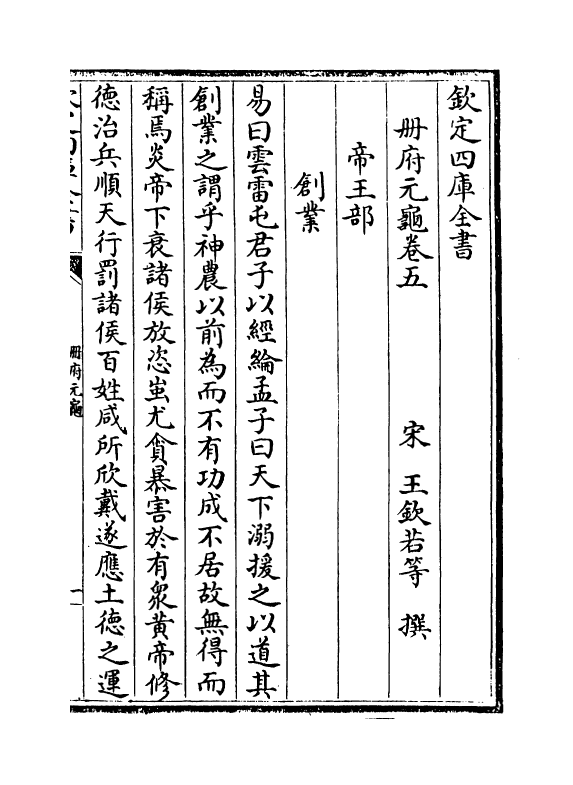 欽定四庫全書
冊府元龜卷五
宋 王欽若等 撰
帝王部
創業
易曰雲雷屯君子以經綸孟子曰天下溺援之以道其
創業之謂乎神農以前為而不有功成不居故無得而
稱焉炎帝下衰諸侯放恣蚩尤貪暴害於有衆黄帝修
德治兵順天行罰諸侯百姓咸所欣戴遂應土德之運
冊府元龜
一